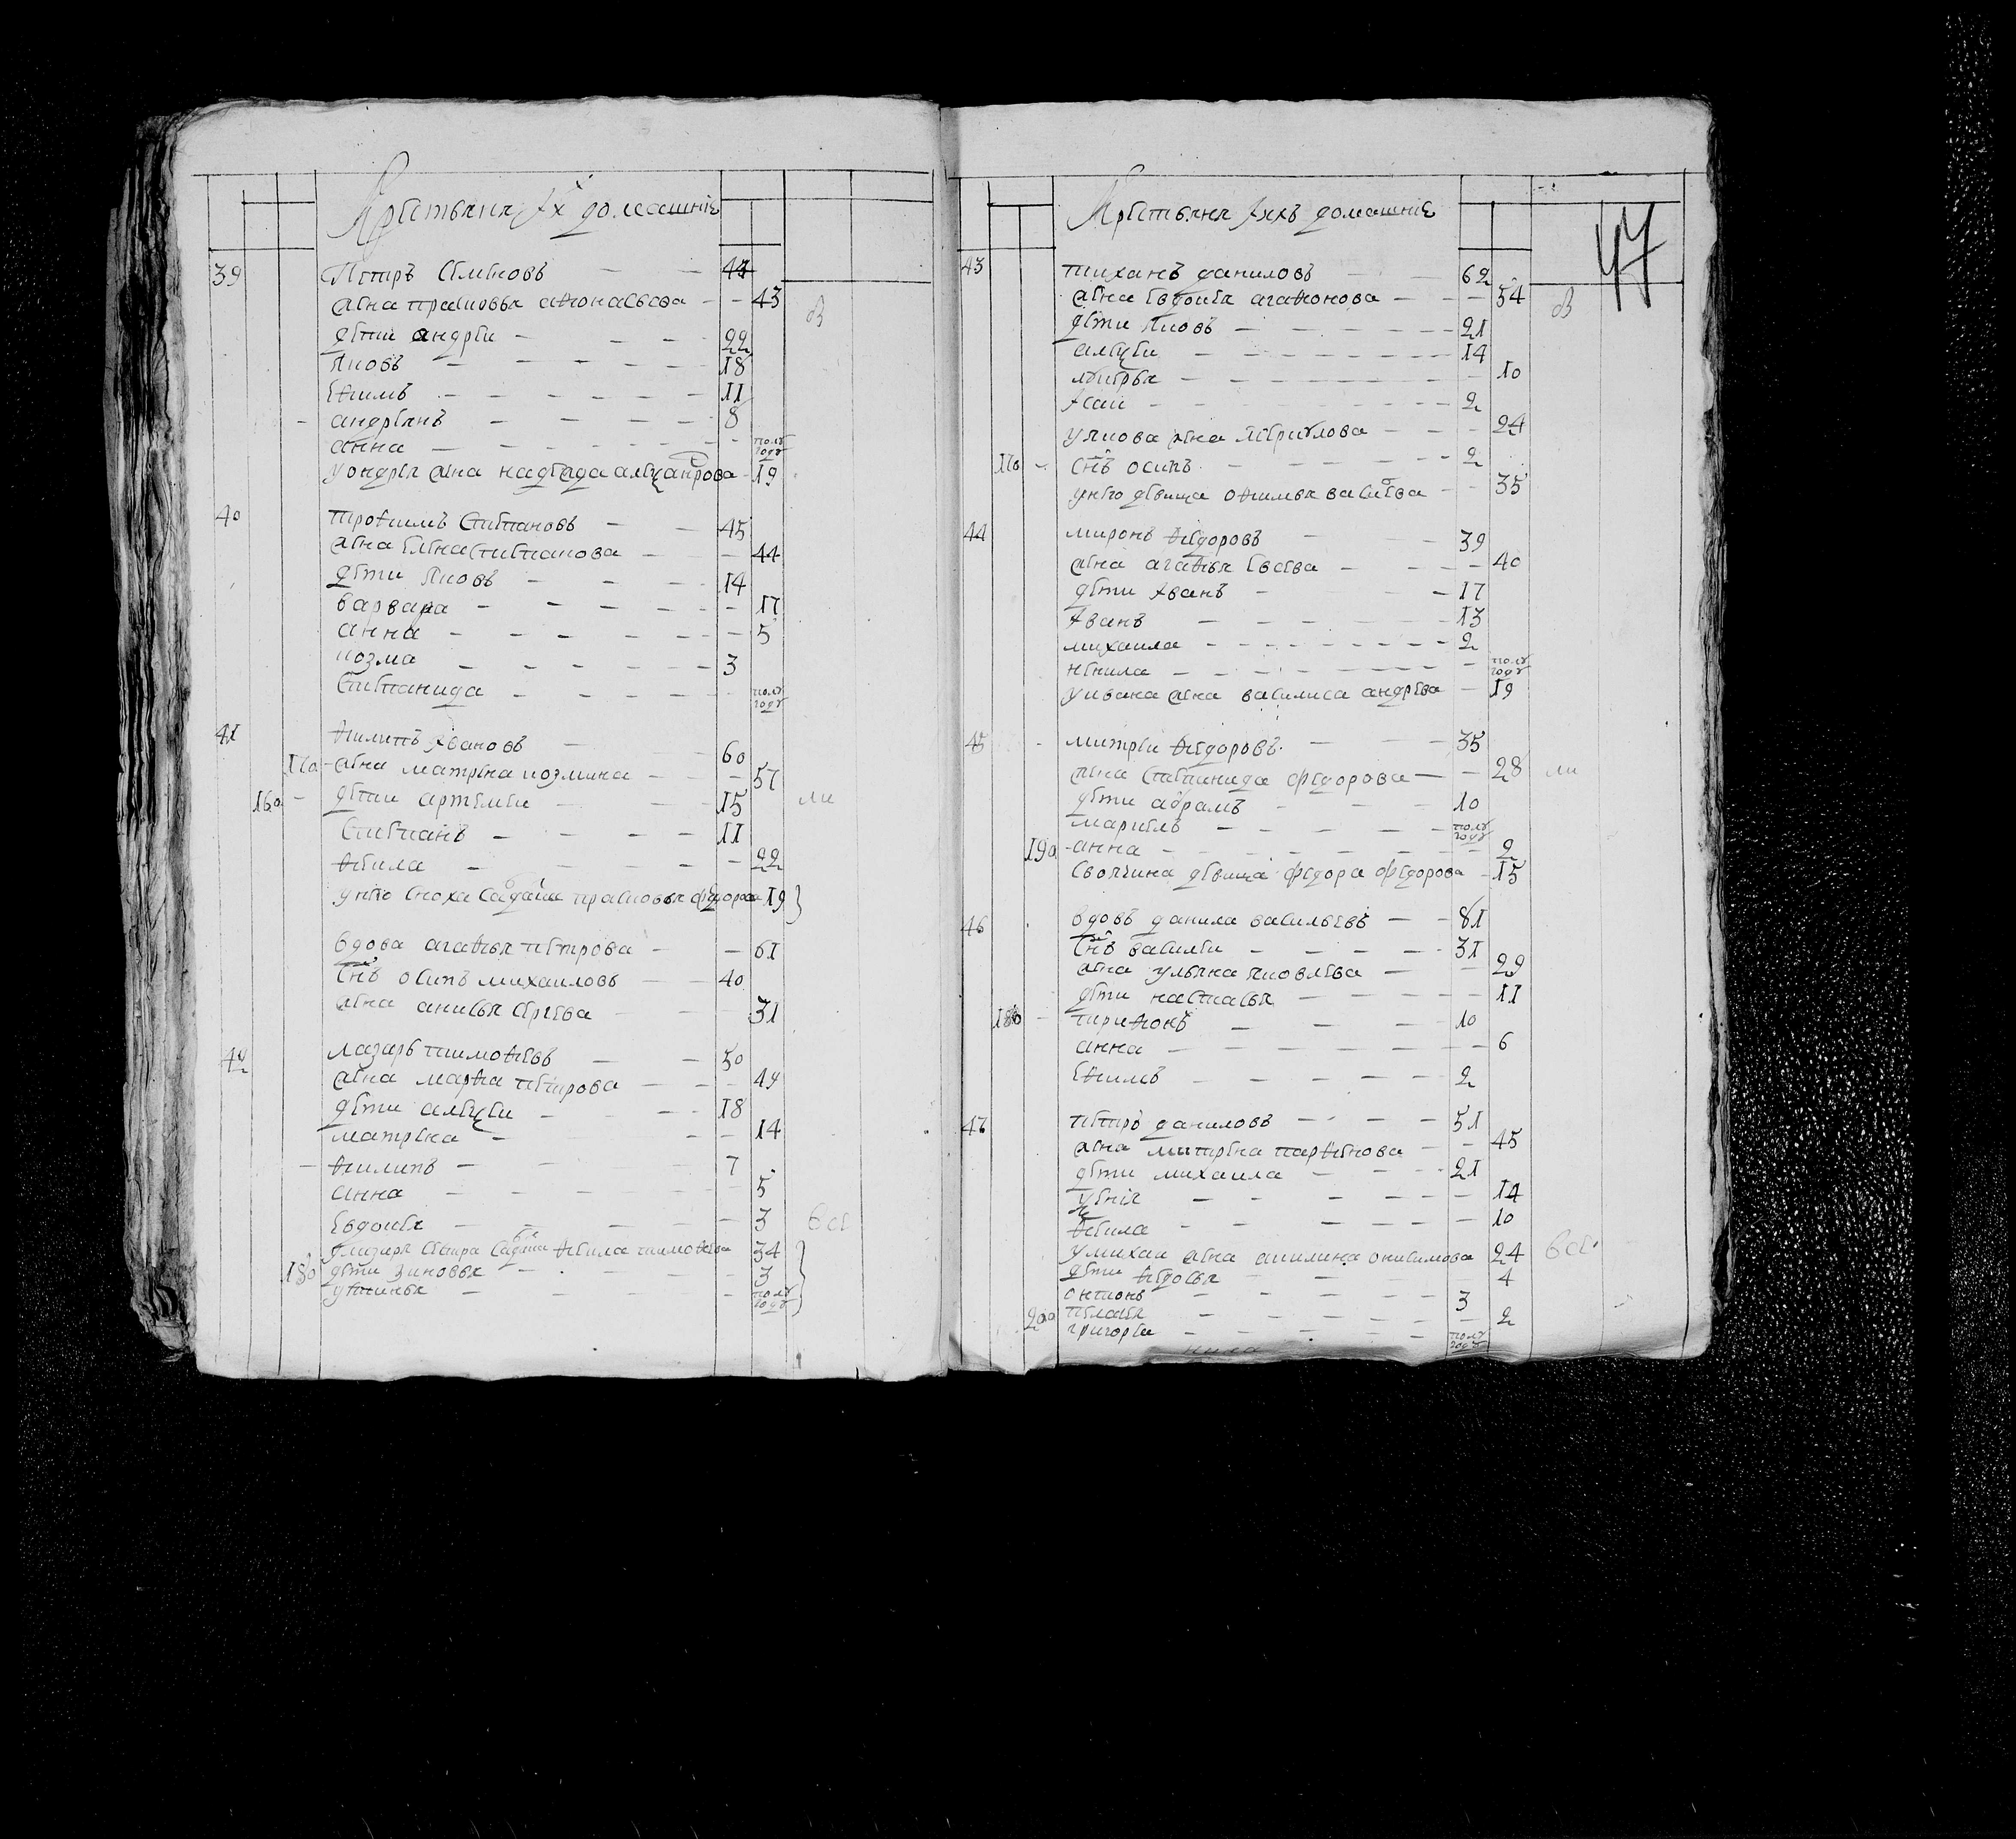 Крестьяня Їх домашнїе
39 Петръ Семеновъ 44
жена прасковья афонасьева 43
дети андреи 22
яковъ 18
ефимъ 11
андреянъ 8
анна полугоду
у ондрея жена надежда алеѯандрова 19
40 трофимъ Степановъ 45
жена елена степанова 44
дети яковъ 14
варвара 17
анна 5
козма 3
Степанида полугоду
41 филипъ Ївановъ 60
170 жена матрена козмина 57
160 дети артемеи 15
Степанъ 11
фекла 22
у него сноха салдатка прасковья федорова 19
вдова агафья петрова 61
снъ осипъ михаиловъ 40
жена анисья сергева 31
42 лазарь тимофеевъ 50
жена марфа петрова 49
дети алеѯеи 18
матрена 14
филипъ 7
анна 5
евдокея 3
у лазаря сестра салдатка фекла тимофева 34
180 дети зиновья 3
устинья полугоду
об
ли
все
Крестьяня Їхъ домашнїе
47
43 тиханъ даниловъ 62
жена евдокея агафонова 54
дети яковъ 21
алеѯеи 14
лукерья 10
Їсаи 2
у якова жена гаврилова 24
170 снъ осипъ 2
у него девица офимья васильева 35
44 миронъ федоровъ 39
жена агафья евсева 40
дети Їванъ 17
Їванъ 13
михаила 2
ненила полугоду
у ивана жена василиса андрева 19
45 митреи федоровъ 35
жена степанида федорова 28
дети абрамъ 10
маркелъ полугоду
190 анна 2
своячина девица федора федорова 15
46 вдовъ данила васильевъ 81
снъ василеи 31
жена ульяна яковлева 29
дети настасья 11
180 тирифонъ 10
анна 6
ефимъ 2
47 петръ даниловъ 51
жена матрена парфенова 45
дети михаила 21
ѯенїя 14
фекла 10
у михаи жена акилина онисимова 24
дети федосья 4
антонъ 3
200 пелагея 2
григореи полугоду
об
ли
все